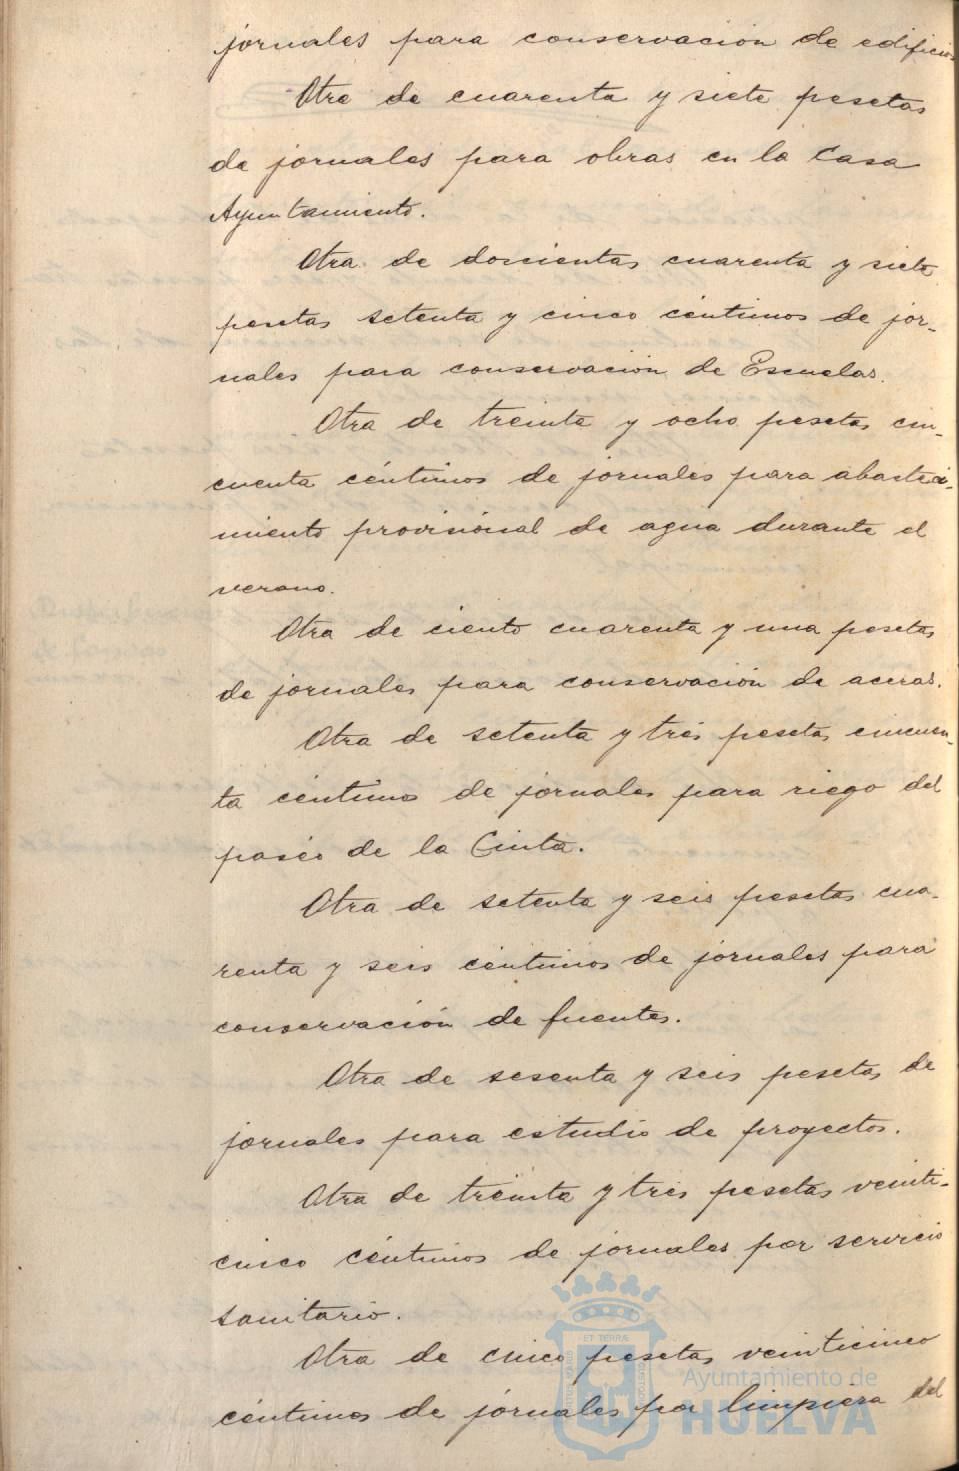 jornales para conservación de edificios
Otra de cuarenta y siete pesetas
de jornales para obras en la Casa
Ayuntamiento.
Otra de doscientas cuarenta y siete
pesetas setenta y cinco céntimos de jor-
nales para conservación de Escuelas.
Otra de treinta y ocho pesetas cin-
cuenta céntimos de jornales para abasteci-
miento provisional de agua durante el
verano.
Otra de ciento cuarenta y una pesetas
de jornales para conservación de aceras.
Otra de setenta y tres pesetas cincuen-
ta céntimos de jornales para riego del
paseo de la Cinta.
Otra de setenta y seis pesetas cua-
renta y seis céntimos de jornales para
conservación de fuentes.
Otra de sesenta y seis pesetas de
jornales para estudio de proyectos.
Otra de treinta y tres pesetas veinti-
cinco céntimos de jornales por servicio
sanitario.
Otra de cinco pesetas veinticinco
céntimos de jornales por limpieza del
ET TERRÆ
Ayuntamiento de
HUELVA